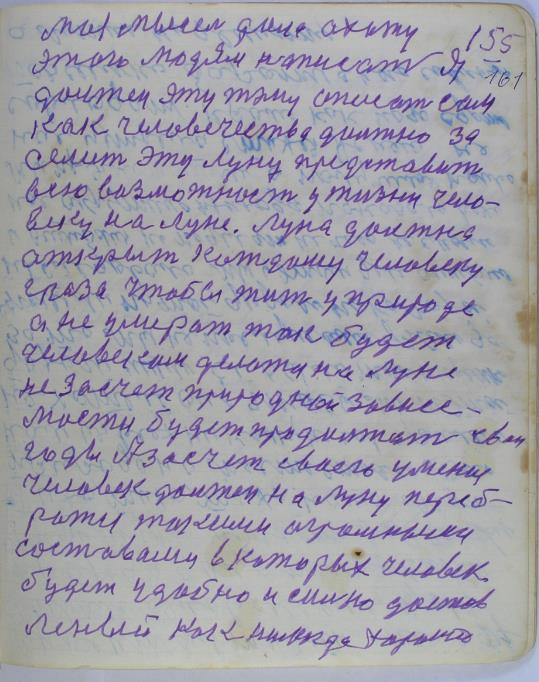 моя мысел дала охоту 155
этого людям написат Я 161
должен эту тэму описат сам
как человечества должно за
селит эту луну представит
всю возможност у жизни чело-
веку на луне. Луна должна
открыт каждому человеку
глаза чтобы жит у природе
а не умират так будет
человеком делатся на луне
не засчет природной зависе-
мости будет продолжат свои
годы А засчет своего умения
человек должен на луну переб-
ратся такими огромными
составами в которых человек
будет удобно и силно достав
леный как никогда хорошо